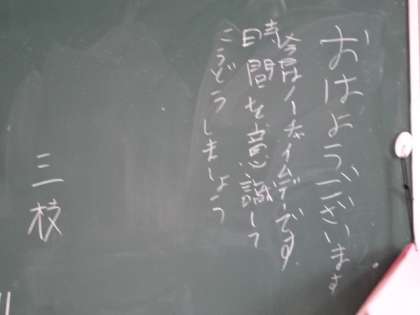 おはようございます
今日はノーチャイムデーです
時間を意識して
こうどうしましょう
三枝